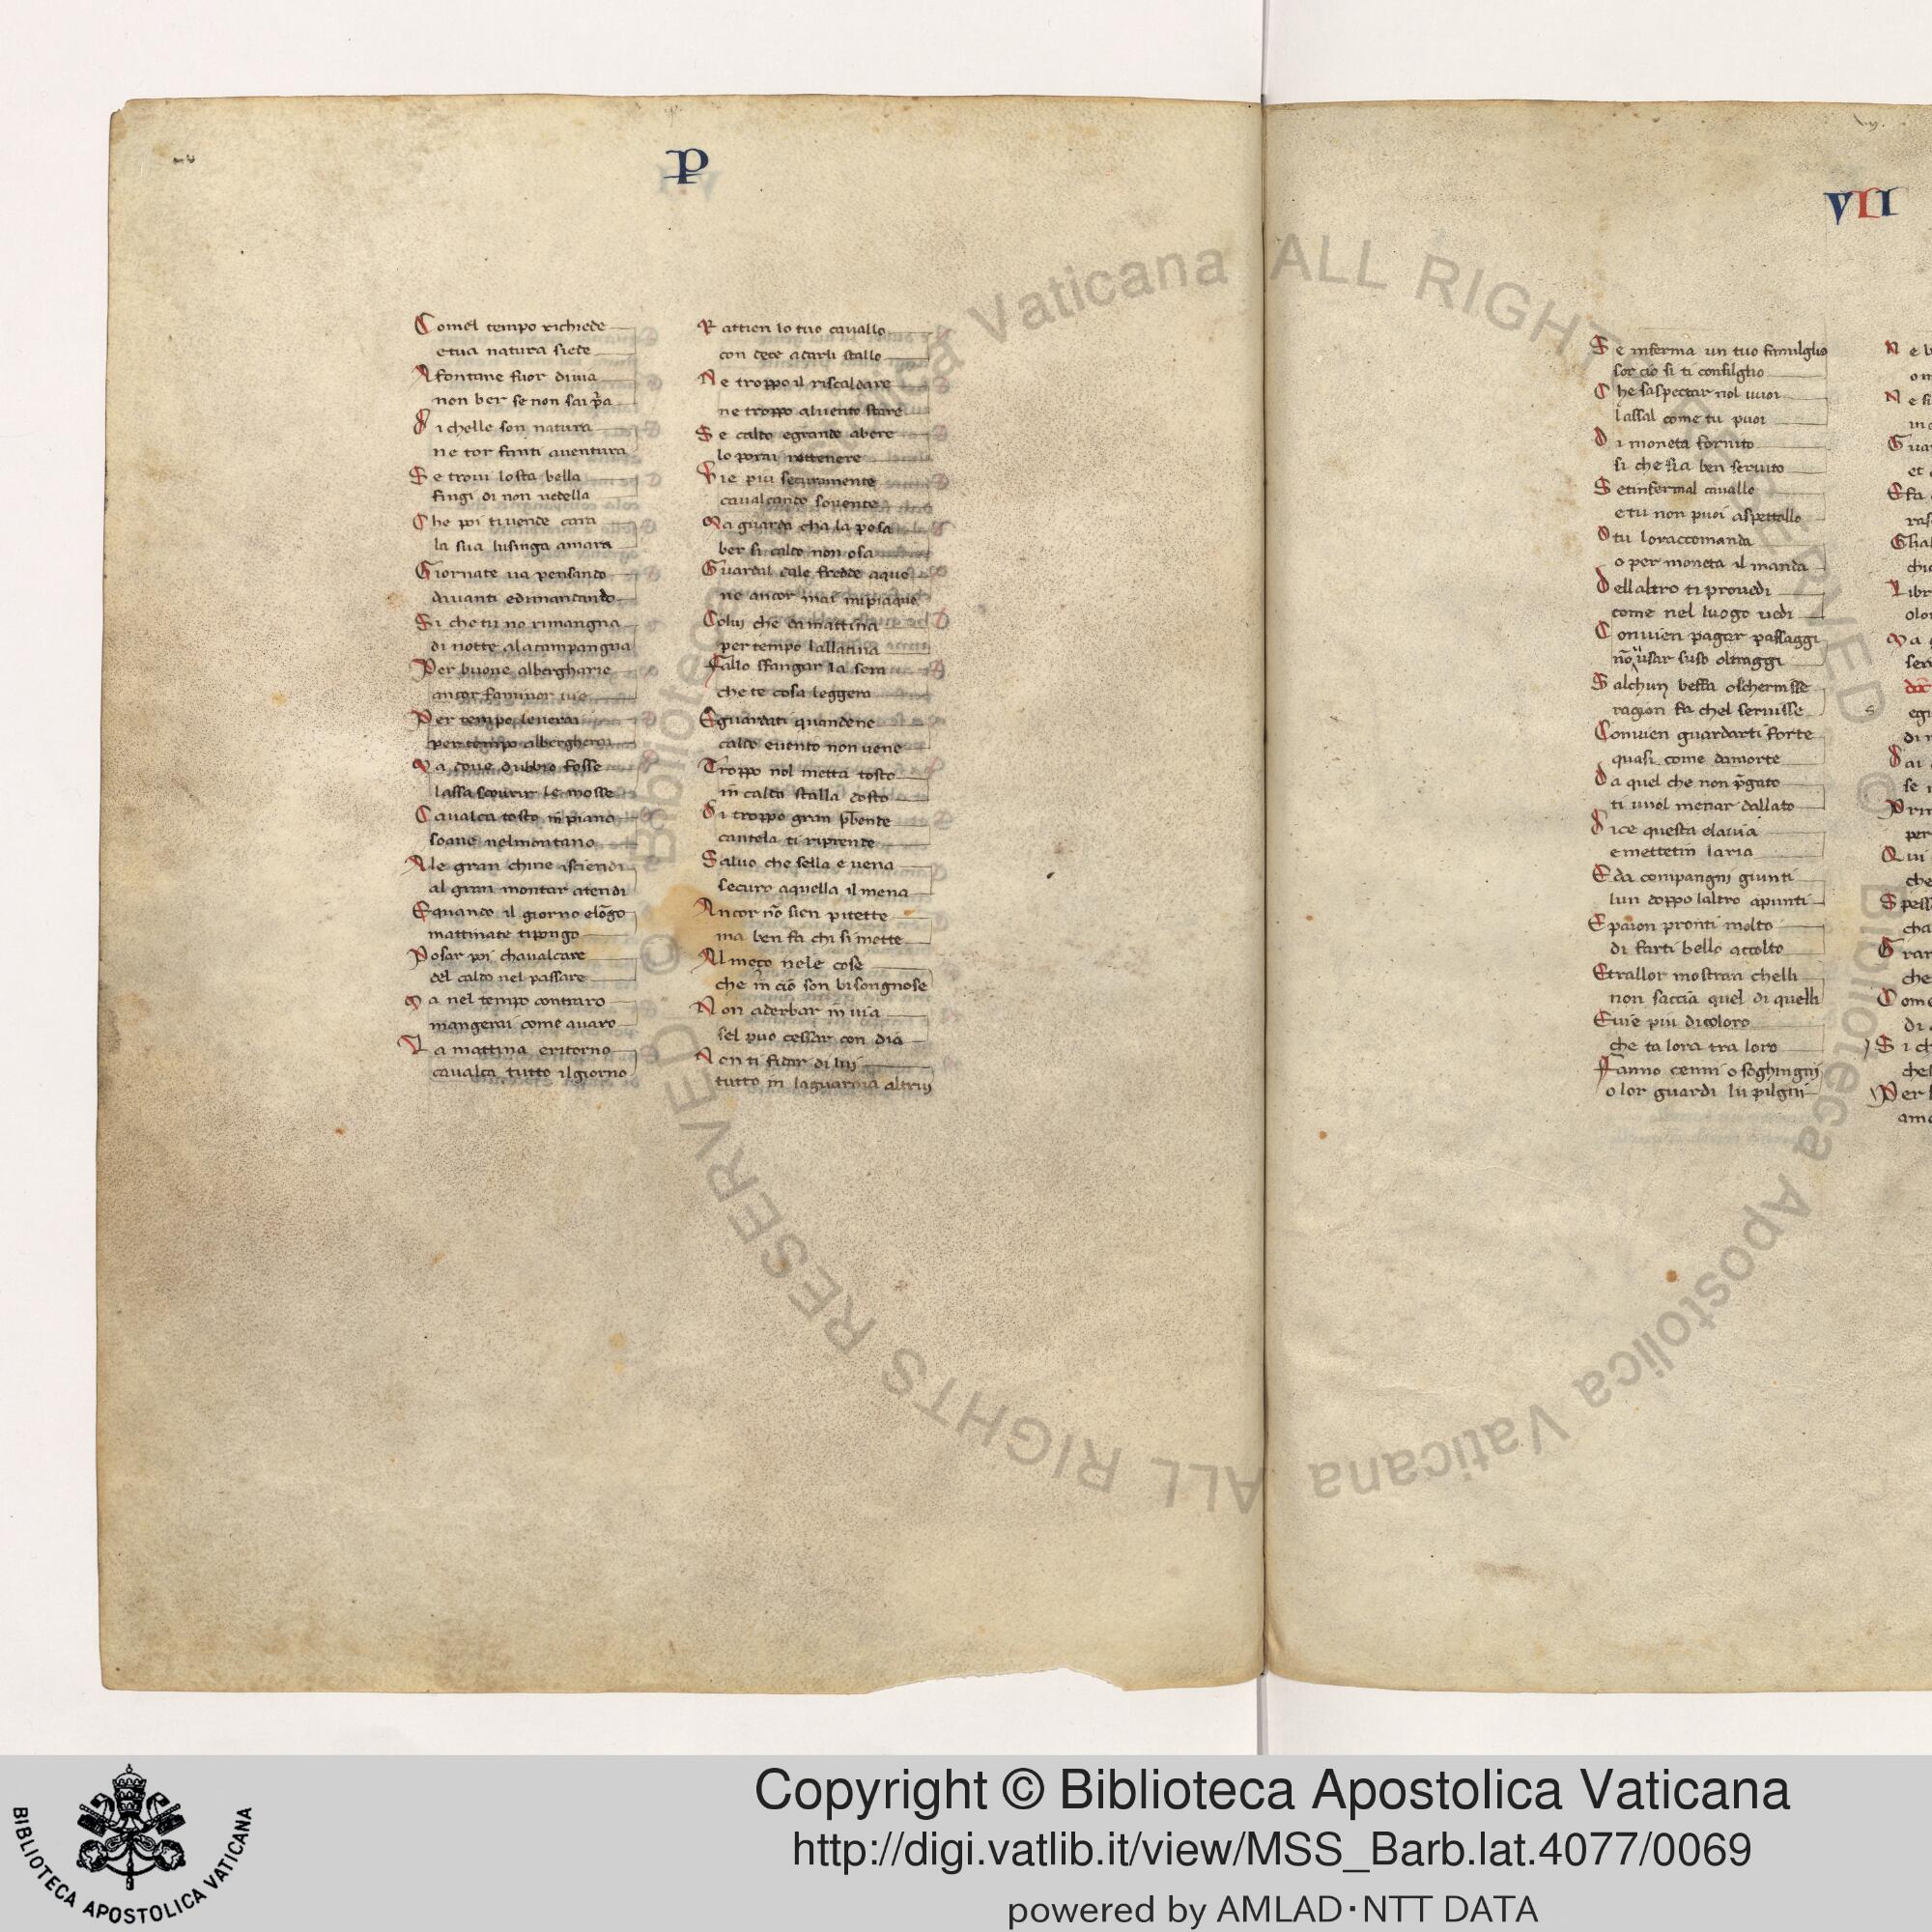 P
Comel tempo richiede
etua natura siede
A fontane fuor diuia
non ber se non sai p̃a
Di chelle son natura
ne tor fanti auentura
Se troui losta bella
fingi di non uedella
Che poi ti uende cara
la sua lusinga amara
Giornate ua pensando
diuanti edimandando
Si che tu no rimangna
di notte ala campangna
Per buone albergharie
ancor fa minor uie
Per tempo leuerai
per tempo albergherai
Ma doue dubbio fosse
lassa scourir le mosse
Caualca tosto in piano
soaue nelmontano
Ale gran chine isciendi
al gran montar atendi
Equando il giorno elõgo
mattinate tipongo
Posar poi chaualcare
del caldo nel passare
Ma nel tempo contraro
mangerai come auaro
La mattina eritorno
caualca tutto ilgiorno
Rattien lo tuo cauallo
con dece adarli stallo
Ne troppo il riscaldare
ne troppo aluento stare
Se caldo egrande abere
lo porai rettenere
Vie piu securamente
caualcando souente
Ma guarda cha la posa
ber si caldo non osa
Guardal dale fredde aque
ne ancor mai mi piaque
Colui che damattina
per tempo lallatina
Fallo sfangar la sera
che te cosa leggera
Eguardati quandene
caldo euento non uene
Troppo nol metta tosto
in calda stalla dosto
Di troppo gran p̃bende
cautela ti riprende
Saluo che sella e uena
securo aquella il mena
Ancor nõ sien pitette
ma ben fa chi si mette
Almeço nele cose
che in cio son bisongnose
Non aderbar in uia
sel puo cessar con dia
Non ti fidar di lui
tutto in laguardia altrui
VII
Se inferma un tuo famiglio
sor cio si ti consilglio
Che saspectar nol uuoi
lassal come tu puoi
Di moneta fornito
si che sia ben seruito
Setinfermal cauallo
etu non puoi aspettallo
O tu loraccomanda
o per moneta il manda
Dellaltro ti prouedi
come nel luogo uedi
Conuien pagar passaggi
nõ usar suso oltraggi
Salchun beffa oschernisse
ragion fa chel seruisse
Conuien guardarti forte
quasi come damorte
Da quel che non p̃gato
ti uuol menar dallato
Dice questa elauia
e mettetin laria
Eda compangni giunti
lun doppo laltro apunti
Epaion pronti molto
di farti bello accolto
Etrallor mostran chelli
non saccia quel di quelli
Euie piu dicoloro
che ta lora tra loro
Fanno cenni o soghingni
o lor guardi lu pilgni
Copyright © Biblioteca Apostolica Vaticana
http://digi.vatlib.it/view/MSS_Barb.lat.4077/0069
powered by AMLAD·NTT DATA
BIBLIOTECA APOSTOLICA VATICANA